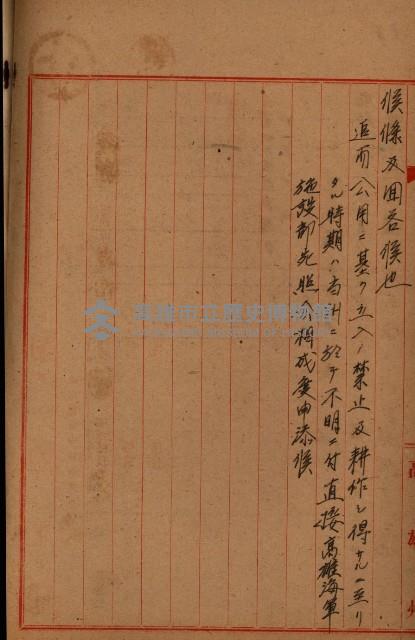 候條及回答候也
追而公用ニ基ク立入ノ禁止及耕作シ得ザルニ至リ
タル時期ハ当州ニ於テ不明ニ付直接高雄海軍
施設部宛照会相成度申添候
高雄市立歷史博物館
KAOHSIUNG MUSEUM OF HISTORY
高雄州